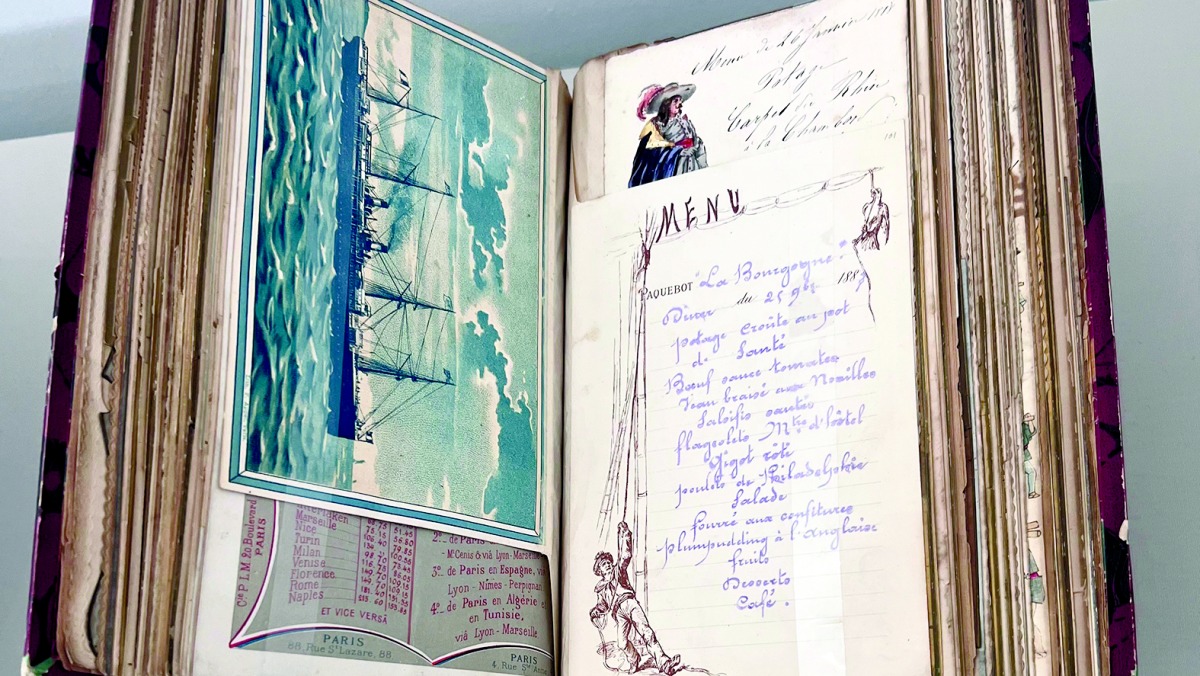 Cie P.L.M. 20 Boulevard
PARIS
Marseille
Nice
Turin
Milan
Venise
Florence
Rome
Naples
ET VICE VERSÂ
PARIS
88, Rue St Lazare, 88
2º_ de Paris
Mt Cenis & via Lyon-Marseille
3º_ de Paris en Espagne, via
Lyon - Nîmes - Perpignan
4º_ de Paris en Algérie e
en Tunisie,
via Lyon - Marseille
PARIS
4, Rue Ste Anne
Menu du 26 Janvier
Potage
Carpe du Rhin
à la Chambord
MENU
PAQUEBOT "La Bourgogne"
Diner du 25 9bre 188
potage croûte au pot
de Santé
Bœuf sauce tomates
Veau braisé aux Nouilles
Salsifis sautés
flageolets Mtre d'hôtel
Gigot rôti
poulets de Philadelphie
Salade
fourré aux confitures
plumpudding à l'anglaise
fruits
Desserts
Café.